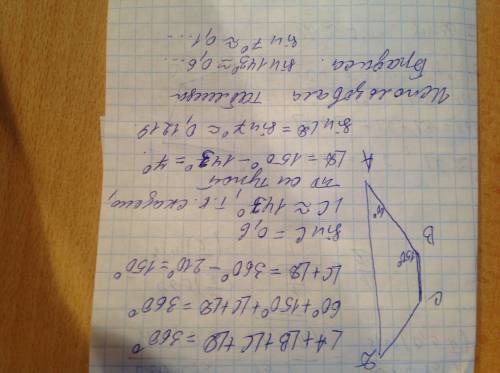 ∠A+∠B+∠C+∠D=360°
60°+150°+∠C+∠D=360°
∠C+∠D=360°-210°=150°
sin C=0,6
∠C≈143°, т.к. сказано,
что он тупой
∠D=150°-143°=7°
sin∠D=sin7°≈0,1219.
Использовала таблицы
Брадиса. sin143°≈0,6...
sin7°≈0,1...
A
B
C
D
150°